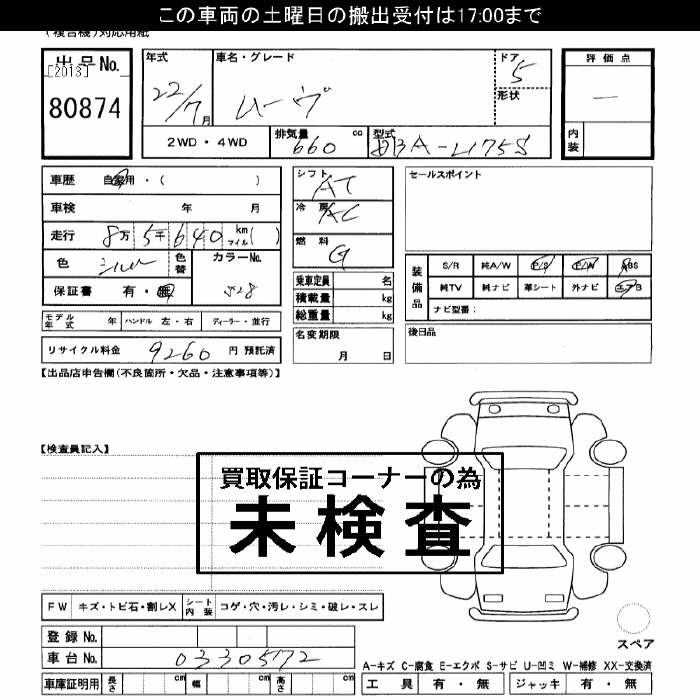 この車両の土曜日の搬出受付は17:00まで
(複合機)対応用紙
出品No.
[2013]
80874
年式
22/7月
車名・グレード
ムーヴ
ドア
5
形状
評価点
—
内装
2WD・4WD
排気量
660 cc
型式
DBA-L175S
車歴 自家用・( )
車検 年 月
走行 8万5千640 km マイル( )
色 シルバー 色替 カラーNo.
保証書 有・無 S28
シフト AT
冷房 AC
燃料 G
乗車定員 名
積載量 kg
総重量 kg
セールスポイント
装備品
S/R 純A/W P/S P/W ABS
純TV 純ナビ 革シート 外ナビ エアB
ナビ型番:
モデル年式 年 ハンドル 左・右 ディーラー・並行
名変期限
月 日
後日品
リサイクル料金 9260 円 預託済
【出品店申告欄(不良箇所・欠品・注意事項等)】
【検査員記入】
買取保証コーナーの為
未検査
FW キズ・トビ石・割レX シート内装 コゲ・穴・汚レ・シミ・破レ・スレ
登録No.
車台No. 0330572
車庫証明用 長さ cm 幅 cm 高さ cm
スペア
A-キズ C-腐食 E-エクボ S-サビ U-凹ミ W-補修 XX-交換済
工具 有・無 ジャッキ 有・無